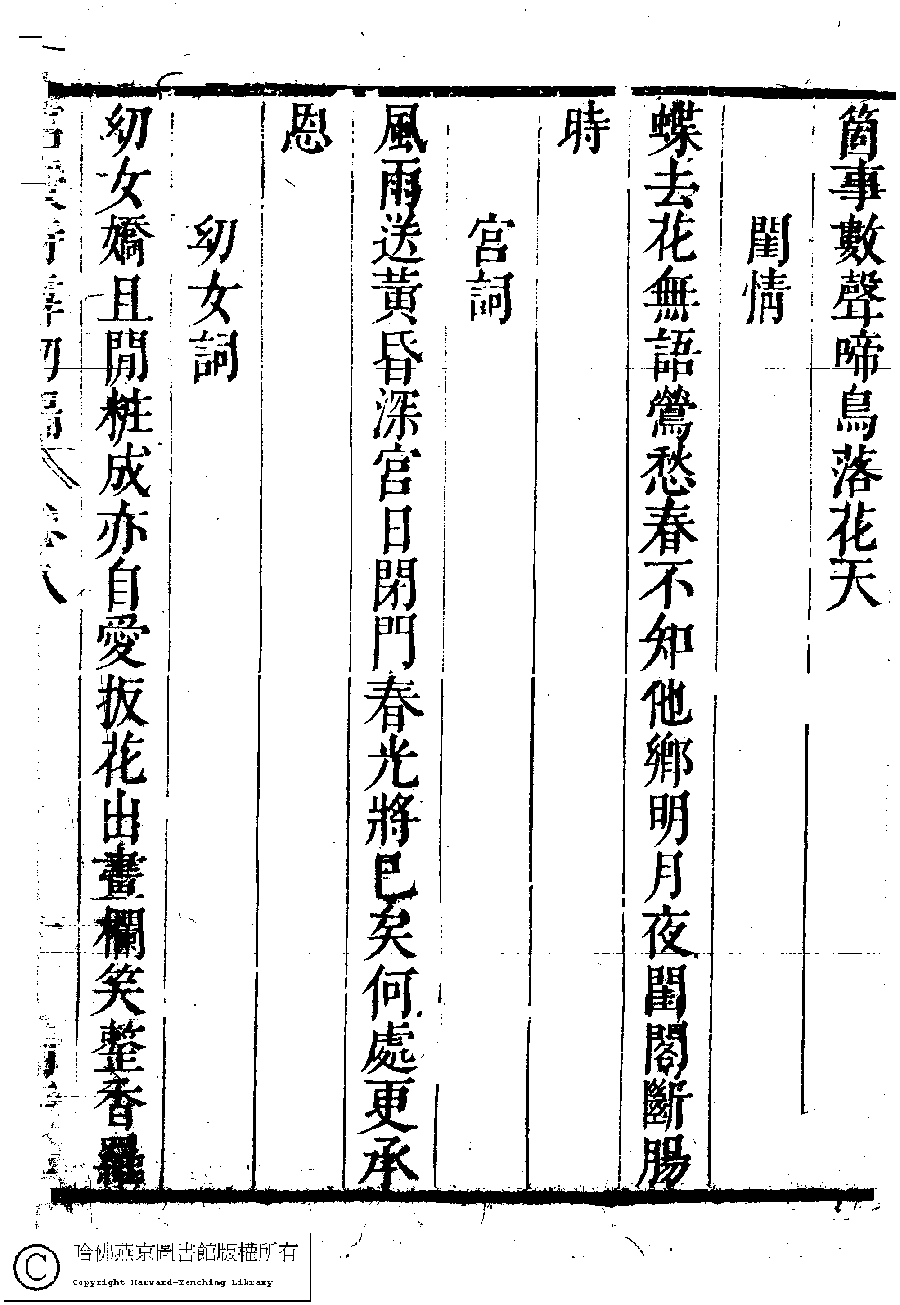 箇事數聲啼鳥落花天
閨情
蝶去花無語鶯愁春不知他鄉明月夜閨閣斷腸
時
宮詞
風雨送黃昏深宮日閉門春光將已矣何處更承
恩
幼女詞
幼女嬌且閒粧成亦自愛扳花出畫欄笑整香羅
哈佛燕京圖書館版權所有
Copyright Harvard-Yenching Library